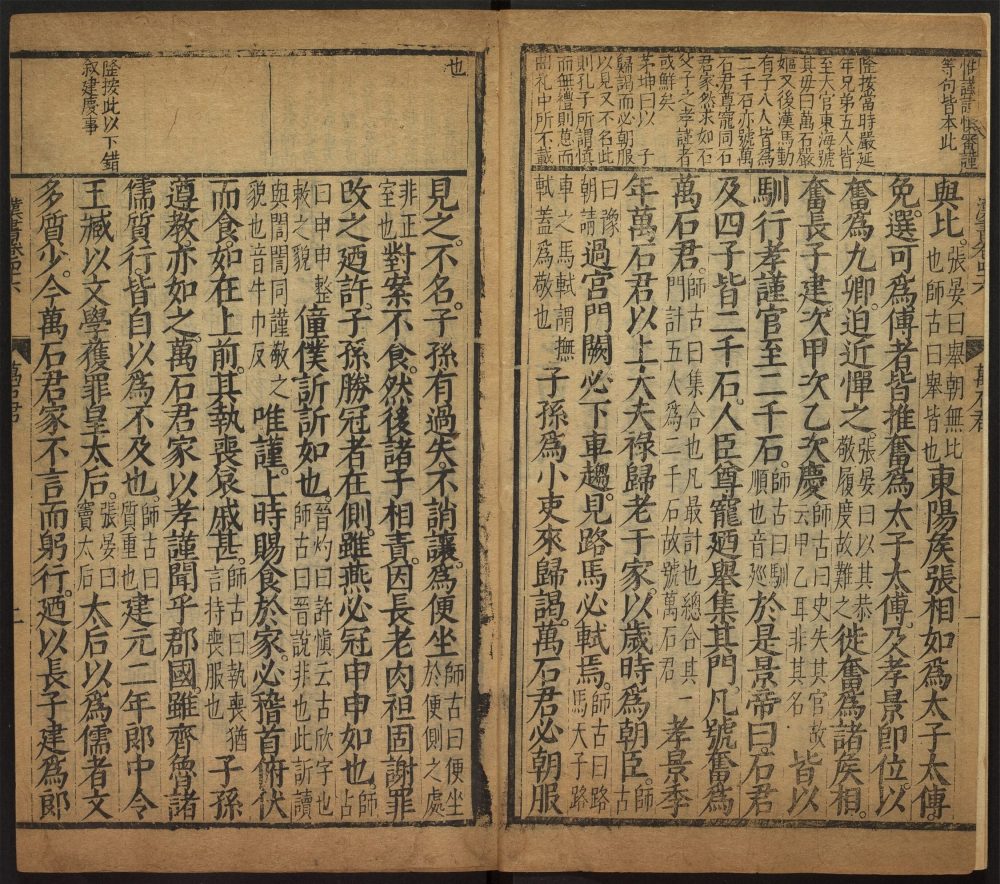 惟謹
等句皆本此
隆按當時嚴延
年兄弟五人皆
至大官東海號
其母曰萬石嚴
嫗又後漢馬勤
有子八人皆爲
二千石亦號萬
石君尊寵同石
君家然求如石
父子之孝謹者
或鮮矣
茅坤曰以子
歸謁而必朝服
以見又不名此
則孔子所謂慎
而無禮則葸而
曲禮中所不載
也
隆按此以下錯
叙建慶事
與比張晏曰舉朝無比也師古曰舉皆也東陽矦張相如爲太子太傅
免選可爲傅者皆推奮爲太子太傅及孝景即位以
奮爲九卿迫近憚之張晏曰以其恭敬履度故難之徙奮爲諸矦相
奮長子建次甲次乙次慶師古曰史失其官故云甲乙耳非其名皆以
馴行孝謹官至二千石師古曰馴順也音巡於是景帝曰石君
及四子皆二千石人臣尊寵廼舉集其門凡號奮爲
萬石君師古曰集合也凡最計也總合其一門計五人爲二千石故號萬石君孝景季
年萬石君以上大夫祿歸老于家以歲時爲朝臣師古曰豫朝請
過宮門闕必下車趨見路馬必軾焉師古曰路馬天子路車之馬軾謂撫軾蓋爲敬也
子孫爲小吏來歸謁萬石君必朝服
見之不名子孫有過失不誚讓爲便坐師古曰便坐於便側之處非正室也
對案不食然後諸子相責因長老肉袒固謝罪
改之廼許子孫勝冠者在側雖燕必冠申申如也師古曰申申整敕之貌
僮僕訢訢如也晉灼曰許慎云古欣字也師古曰晉說非也此訢讀與誾誾同謹敬之貌也音牛巾反
唯謹上時賜食於家必稽首俯伏
而食如在上前其執喪哀戚甚師古曰執喪猶言持喪服也子孫
遵教亦如之萬石君家以孝謹聞乎郡國雖齊魯諸
儒質行皆自以爲不及也師古曰質重也建元二年郎中令
王臧以文學獲罪皇太后張晏曰竇太后太后以爲儒者文
多質少今萬石君家不言而躬行廼以長子建爲郎
萬石君